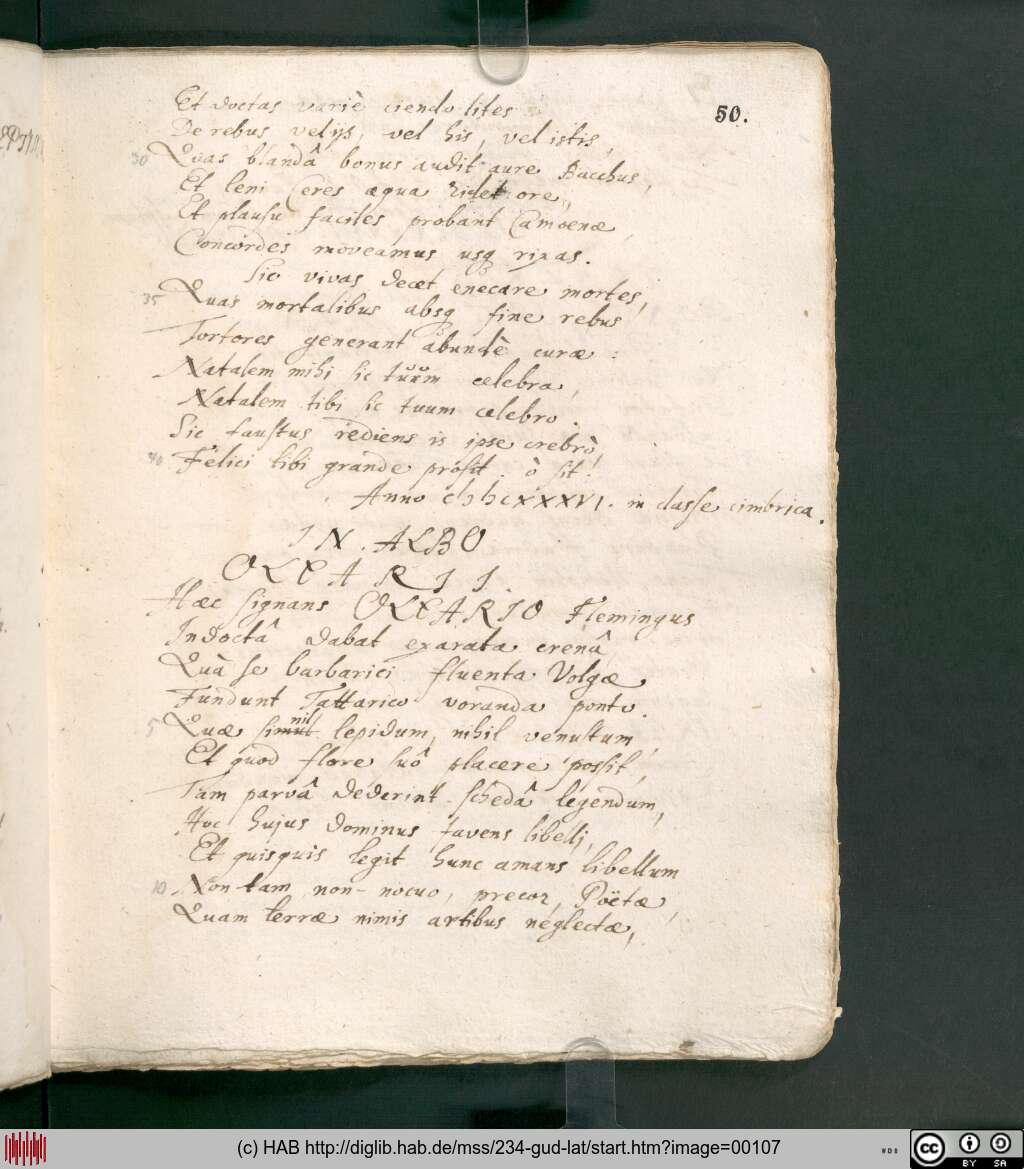 50.
Et doctas variè ciendo lites
De rebus vel ijs, vel his, vel istis,
30 Quas blandâ bonus audit aure Bacchus,
Et leni Ceres æqua ridet ore,
Et plausu faciles probant Camoenæ,
Concordes moveamus usq rixas.
Sic vivas decet enecare mortes,
35 Quas mortalibus absq fine rebus
Tortores generant abundè curæ:
Natalem mihi sic tuum celebra,
Natalem tibi sic tuum celebro.
Sic faustus rediens is ipse crebrò,
40 Felici tibi grande prosit. ò sit.
Anno cIↄ Iↄc XXXVI. in classe cimbrica.
IN. ALBO
OLEARII.
Hæc signans OLEARIO Flemingus
Indoctâ dabat exarata crenâ,
Quà se barbarici fluenta Volgæ
Fundunt Tattarico voranda ponto.
5 Quæ si nil lepidum, nihil venustum,
Et quod flore suô placere possit,
Tam parvâ dederint schedâ legendum,
Huc hujus dominus favens libelli,
Et quisquis legit hunc amans libellum
10 Non tam non-nocuo, precor, Poëtæ,
Quam terræ nimis artibus neglectæ,
(c) HAB http://diglib.hab.de/mss/234-gud-lat/start.htm?image=00107
cc BY SA